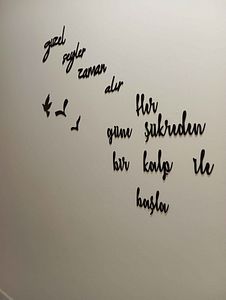 güzel
şeyler
zaman
alır
Her
güne şükreden
bir kalp ile
başla